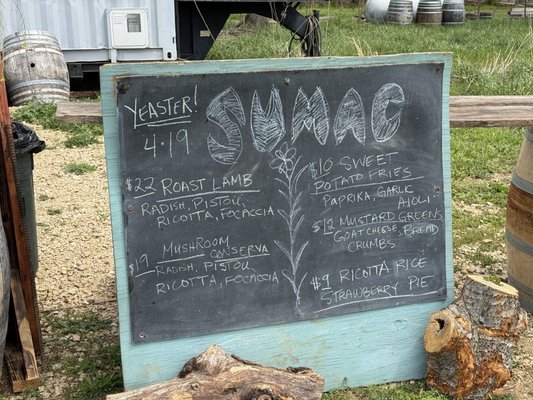 YEASTER!
4.19
SUMAC
$22 ROAST LAMB
RADISH, PISTOU,
RICOTTA, FOCACCIA
$19 MUSHROOM CONSERVA
RADISH, PISTOU,
RICOTTA, FOCACCIA
$10 SWEET
POTATO FRIES
PAPRIKA, GARLIC
AIOLI
$12 MUSTARD GREENS
GOAT CHEESE, BREAD
CRUMBS
$9 RICOTTA RICE
STRAWBERRY PIE